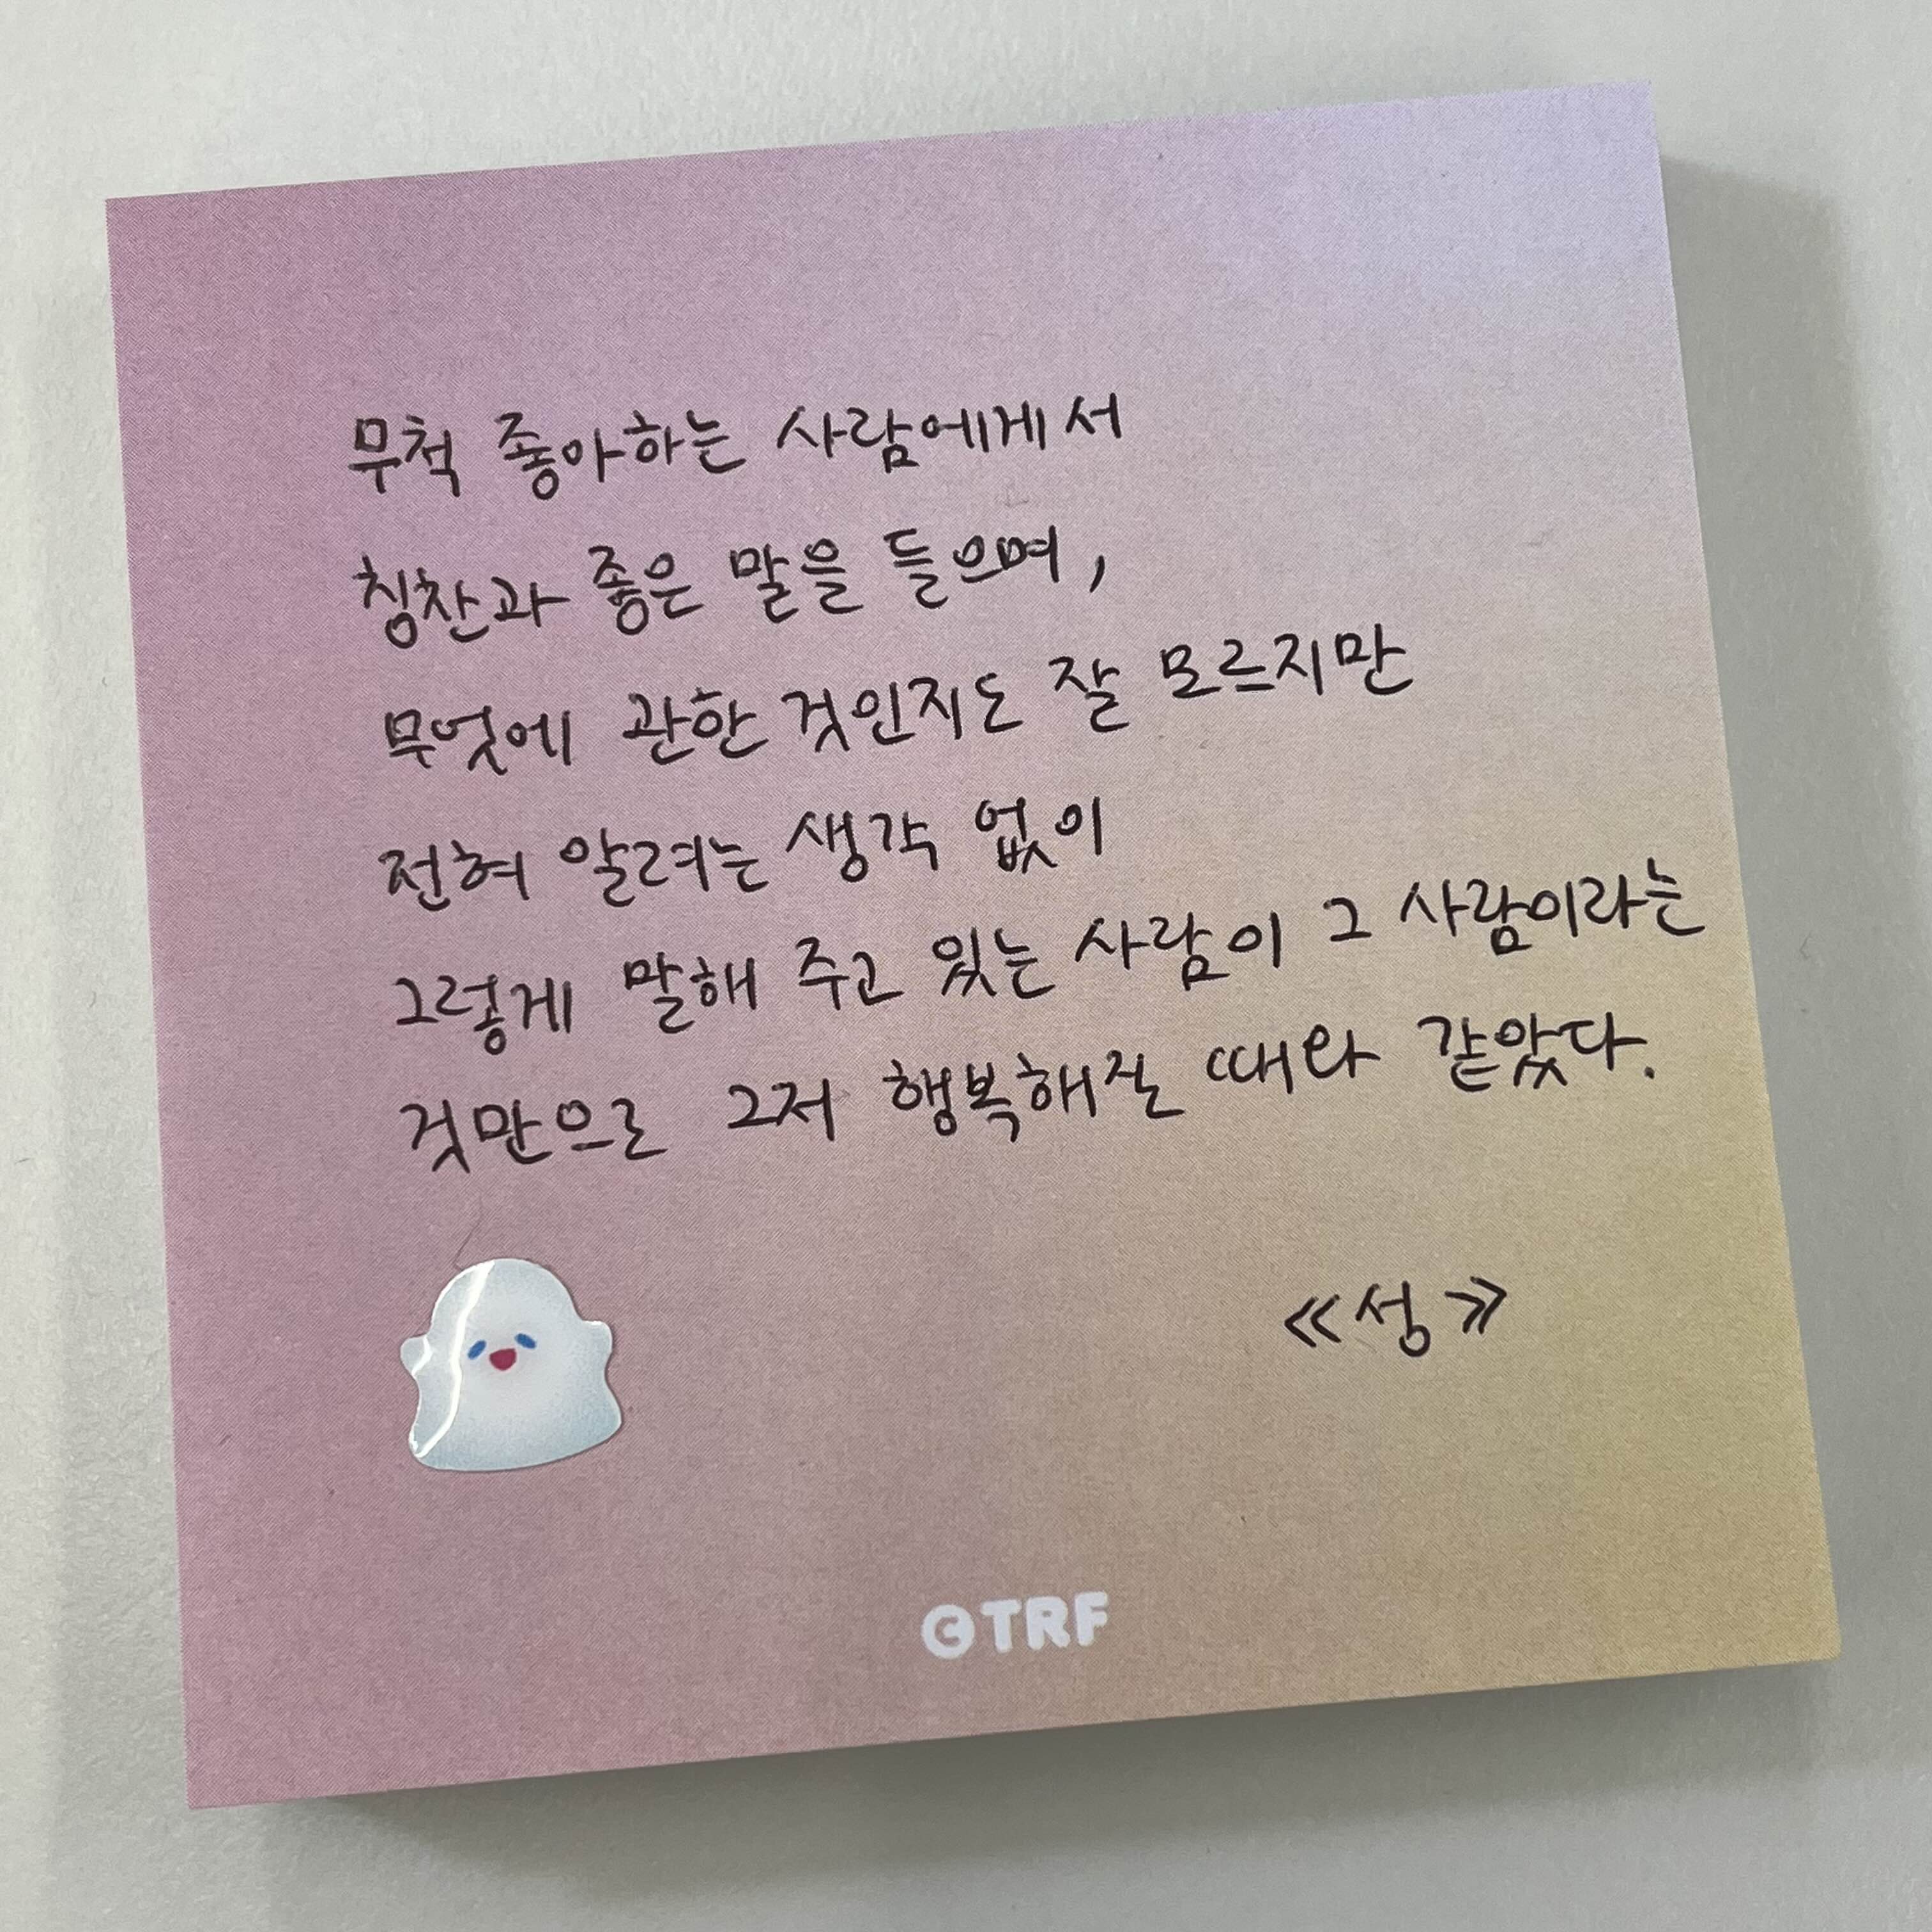 무척 좋아하는 사람에게서
칭찬과 좋은 말을 들으며,
무엇에 관한 것인지도 잘 모르지만
전혀 알려는 생각 없이
그렇게 말해 주고 있는 사람이 그 사람이라는
것만으로 그저 행복해질 때와 같았다.
≪성≫
©TRF